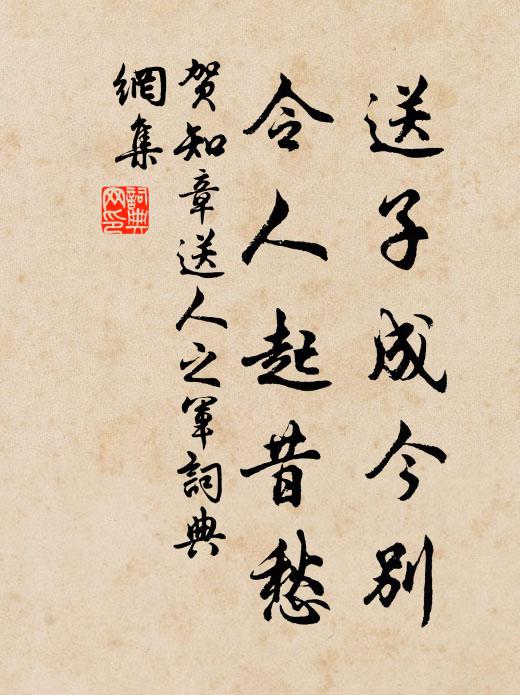 送子成今别
令人起昔愁
贺知章送人之軍詞典
網集
詞典
网印